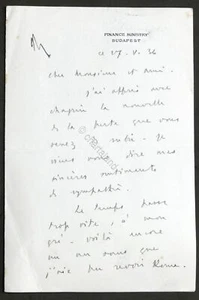 FINANCE MINISTRY
BUDAPEST
Cher Monsieur et Ami.
J'ai appris avec
chagrin la nouvelle
de la perte que vous
venez subir. Je
viens vous dire mes
sincères sentiments
de sympathie.
Le temps passe
trop vite, à mon
gré. Voilà encore
que
j'aie pu revoir Rome.